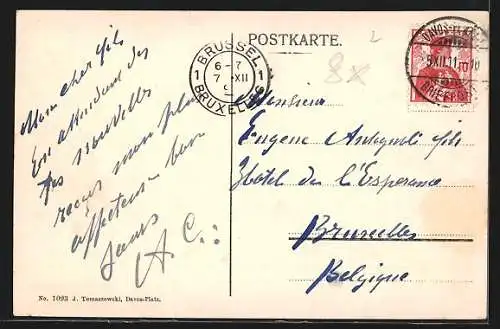 POSTKARTE.
BRUSSEL
1 6-7 1
7 XII
9
BRUXELLES
DAVOS-PLATZ
9 XII 11 10
BRIEF
8x
Mon cher fils
En attendant des
tes nouvelles
reçois mon plus
affectueux bon
jours
A C.
Monsieur
Eugène fils
Hôtel de l'Esperance
Bruxelles
Belgique
No. 1093 J. Tomaszewski, Davos-Platz.